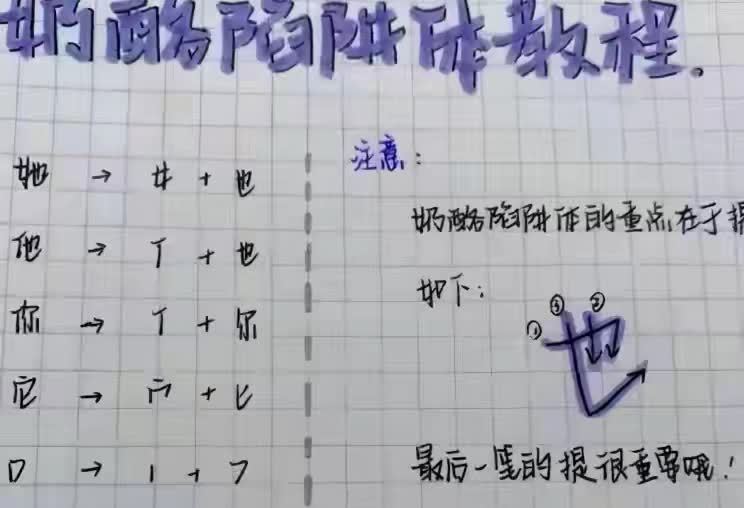 奶酪陷阱体教程。
她 → 女 + 也
他 → 亻 + 也
你 → 亻 + 尔
它 → 宀 + 匕
口 → 丨 + 𠃌
注意：
奶酪陷阱体的重点在于提
如下：
① ③ ②
也
最后一笔的提很重要哦！